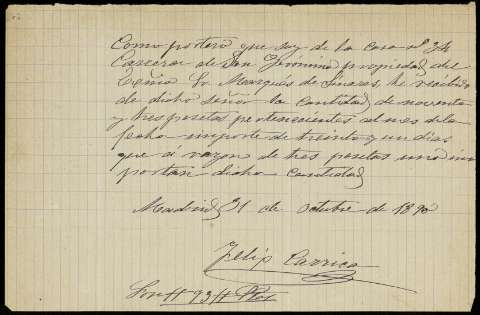 Como portero que soy de la casa nº 34
Carrera de San Geronimo propiedad del
Exmo Sr Marqués de Linares, he recibido
de dicho señor la cantidad de noventa
y tres pesetas pertenecientes al mes de la
fecha importe de treinta y un dias
que á razon de tres pesetas uno im
portan dicha cantidad
Madrid 31 de octubre de 1890
Felix Carrica
Son # 93 # Ptas